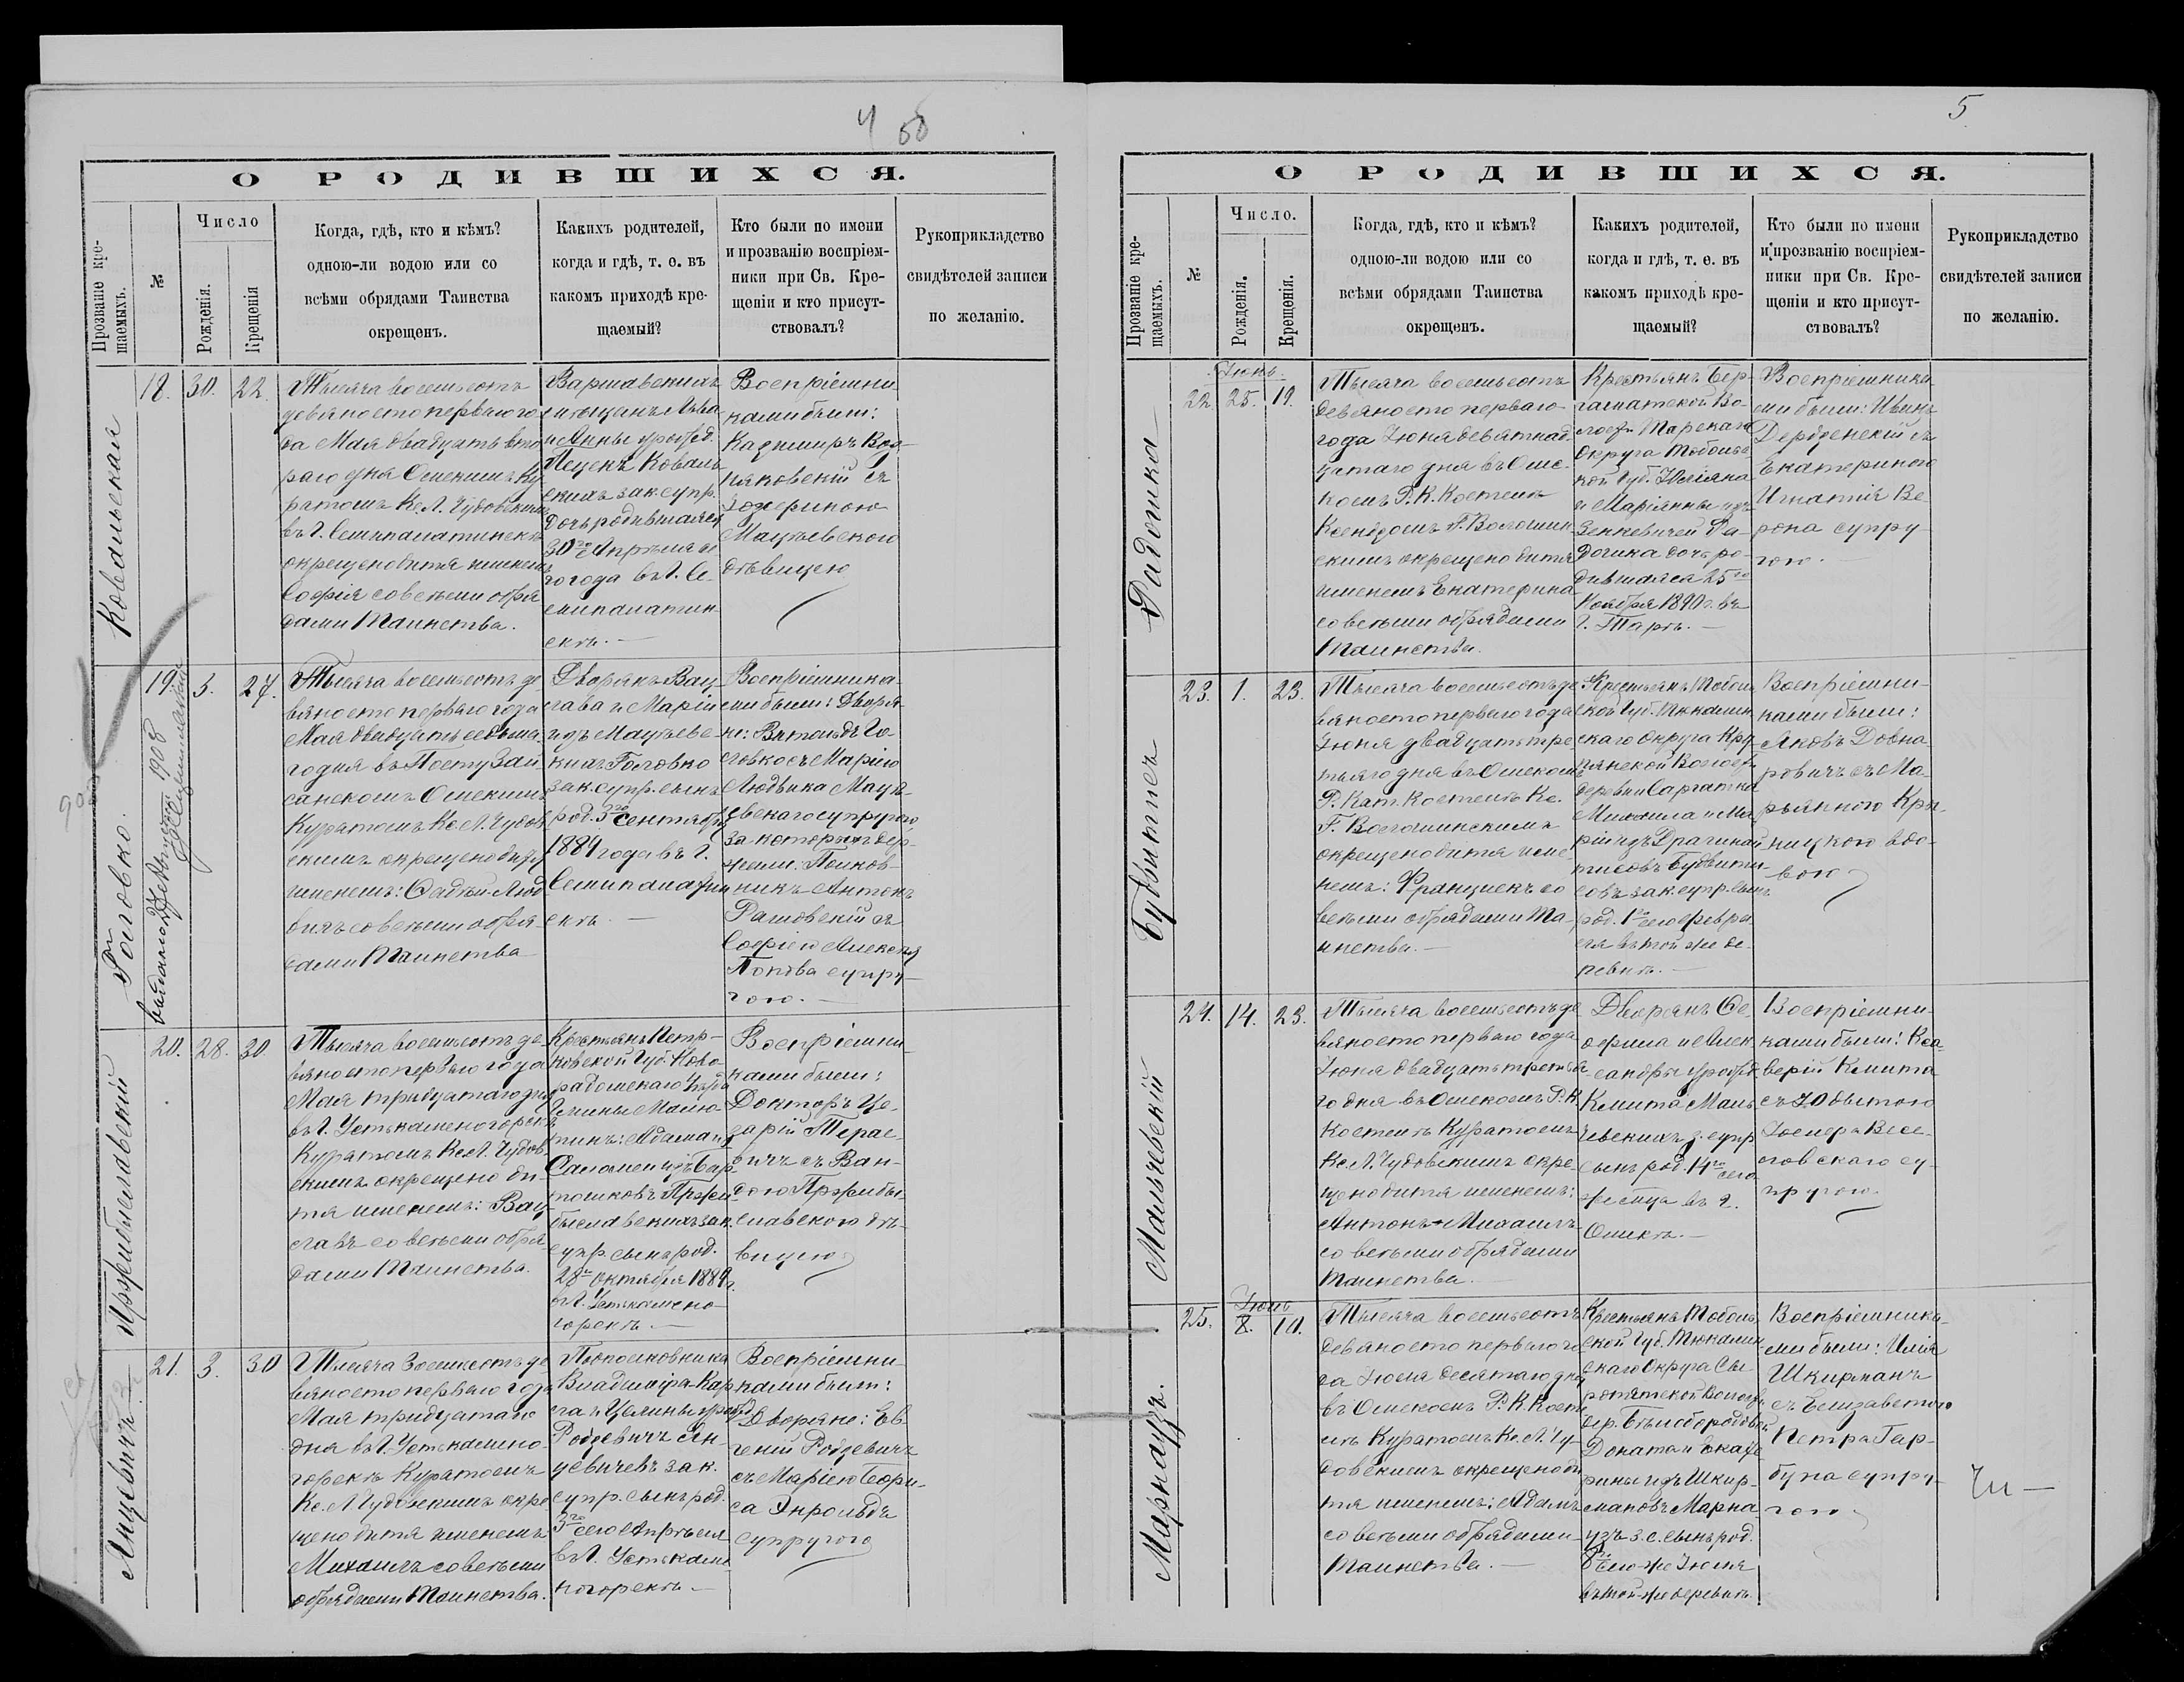 4 об
О РОДИВШИХСЯ.
Прозваніе кре-
щаемыхъ.
№
Число
Рожденія.
Крещенія
Когда, гдѣ, кто и кѣмъ?
одною-ли водою или со
всѣми обрядами Таинства
окрещенъ.
Какихъ родителей,
когда и гдѣ, т. е. въ
какомъ приходѣ кре-
щаемый?
Кто были по имени
и прозванію воспріем-
ники при Св. Кре-
щеніи и кто присут-
ствовалъ?
Рукоприкладство
свидѣтелей записи
по желанію.
Ковальская
18.
30.
22.
Тысяча восемьсотъ
девяносто перваго го
да Мая двадцать вто
раго дня Омскимъ Ку
ратомъ Кс. Л. Чудовскимъ
въ Г. Семипалатинскѣ
окрещено дитя именемъ
Софія со всѣми обря
дами Таинства.
Варшавскихъ
мѣщанъ Льва
и Анны урожд.
Пецекъ Коваль
скихъ зак. супр.
дочь родившаяся
30го Апрѣля се
го года въ Г. Се-
мипалатин
скѣ. —
Воспріемни
ками были:
Казимиръ Воз-
няковскій съ
Зофериною
Мацѣевскою
дѣвицею
Головко.
19.
5.
27.
Тысяча восемьсотъ де
вяносто перваго года
Мая двадцать седьма
го дня въ Посту Зай
санскомъ Омскимъ
Куратомъ Кс. Л. Чудов
скимъ окрещено дитя
именемъ: Фадѣй Люд
викъ со всѣми обря-
дами Таинства
Дворянъ Вац-
лава и Маріи
изъ Мацѣевс-
кихъ Головко
зак. супр. сынъ
род. 5го Сентября
1889 года въ Г.
Семипалатин
скѣ. —
Воспріемника-
ми были: Дворя-
не: Витольдъ Го-
ловко съ Маріею
Людвика Мацѣ-
евскаго супругою
за которыхъ дер-
жали: Полков-
никъ Антонъ
Рашовскій съ
Софіею Алексѣя
Попова супру-
гою. —
Пржибыславскій
20.
28.
30
Тысяча восемьсотъ де
вяносто перваго года
Мая тридцатаго дня
въ Г. Устькаменогорскѣ
Куратомъ Кс. Л. Чудов
скимъ окрещено ди-
тя именемъ: Вац
лавъ со всѣми обря-
дами Таинства.
Крестьянъ Петр-
ковской Губ. Ново
радомскаго Уѣзда
Гмины Малю-
тинъ: Адама и
Саломеи изъ Бар
тошковъ Пржи
быславскихъ зак.
супр. сынъ род.
28го Октября 1889
въ Г. Устькамено-
горскѣ. —
Воспріемни-
ками были:
Докторъ Це-
зарій Терас
вичъ съ Ван-
дою Пржибы-
славскою дѣ-
вицею
Яцевичъ
21.
3.
30
Тысяча восемьсотъ де
вяносто перваго года
Мая тридцатаго
дня въ Г. Устькамено-
горскѣ Куратомъ
Кс. Л. Чудовскимъ окре
щено дитя именемъ
Михаилъ со всѣми
обрядами Таинства.
Подполковника
Владиміра Кар
ла и Целины урожд
Родзевичъ Ян-
цевичевъ зак.
супр. сынъ род.
3го сего Апрѣля
въ Г. Устькаме
ногорскѣ —
Воспріемни-
ками были:
Дворяне: Ев-
геній Родзевичъ
съ Маріею Бори-
са Энрольдъ
супругою
5
О РОДИВШИХСЯ.
Прозваніе кре-
щаемыхъ.
№
Число.
Рожденія.
Крещенія.
Когда, гдѣ, кто и кѣмъ?
одною-ли водою или со
всѣми обрядами Таинства
окрещенъ.
Какихъ родителей,
когда и гдѣ, т. е. въ
какомъ приходѣ кре-
щаемый?
Кто были по имени
и прозванію воспріем-
ники при Св. Кре-
щеніи и кто присут-
ствовалъ?
Рукоприкладство
свидѣтелей записи
по желанію.
Іюнь.
22
25.
19.
Тысяча восемьсотъ
девяносто перваго
года Іюня девятнад
цатаго дня въ Омс-
комъ Р. К. Костелѣ
Ксендзомъ Г. Волошин
скимъ окрещено дитя
именемъ Екатерина
со всѣми обрядами
Таинства.
Крестьянъ Бер-
гаматской Во-
лости Тарскаго
Округа Тобольс
кой Губ. Юліяна
и Маріянны изъ
Зенкевичей
дочь ро-
дившаяся 25го
Ноября 1890 г. въ
Г. Тарѣ. —
Воспріемника-
ми были: Иванъ
съ
Екатериною
Игнатія Ве
рока супру-
гою. —
Будвитисъ
23.
1.
23.
Тысяча восемьсотъ де
вяносто перваго года
Іюня двадцать тре
тьяго дня въ Омскомъ
Р. Кат. Костелѣ Кс.
Г. Волошинскимъ
окрещено дитя име-
немъ: Францискъ со
всѣми обрядами Та-
инства. —
Крестьянъ Тоболь
ской Губ. Тюкалин
скаго Округа Кру
пянской Волости
деревни Саргатка
Михаила и Ма
ріи изъ
Будвити-
совъ зак. супр. сынъ
род. 1го сего Февра
ля въ той же де-
ревнѣ. —
Воспріемни-
ками были:
Яковъ Довна
ровичъ съ Ма-
рьянною Кры
ницкою вдо-
вою
Мальчевскій
24.
14.
23.
Тысяча восемьсотъ де
вяносто перваго года
Іюня двадцать третья
го дня въ Омскомъ Р. К.
Костелѣ Куратомъ
Кс. Л. Чудовскимъ окре-
щено дитя именемъ:
Антонъ-Михаилъ
со всѣми обрядами
Таинства. —
Дворянъ Фе
офила и Алек
сандры урожд.
Кмита Маль
чевскихъ з. супр
сынъ род. 14го сего
мѣсяца въ г.
Омскѣ. —
Воспріемни
ками были: Кса-
верій Кмита
съ Юдвигою
Іосифа Весе-
ловскаго су-
пругою
Марнаузъ.
25.
Іюль
8.
10.
Тысяча восемьсотъ
девяносто перваго го
да Іюля десятаго дня
въ Омскомъ Р. К. Косте
лѣ Куратомъ Кс. Л. Чу-
довскимъ окрещено ди
тя именемъ: Адамъ
со всѣми обрядами
Таинства. —
Крестьянъ Тоболь
ской Губ. Тюкалин
скаго Округа Сы
ропятской Волости
дер. Бѣлобородовки
Доната и Екате
рины изъ Шкир-
мановъ Марна
узъ з. с. сынъ род.
8го сего-же Іюля
въ той-же деревнѣ.
Воспріемника-
ми были: Илія
Шкирманъ
съ Елизаветою
Петра Гар-
буна супру-
гою